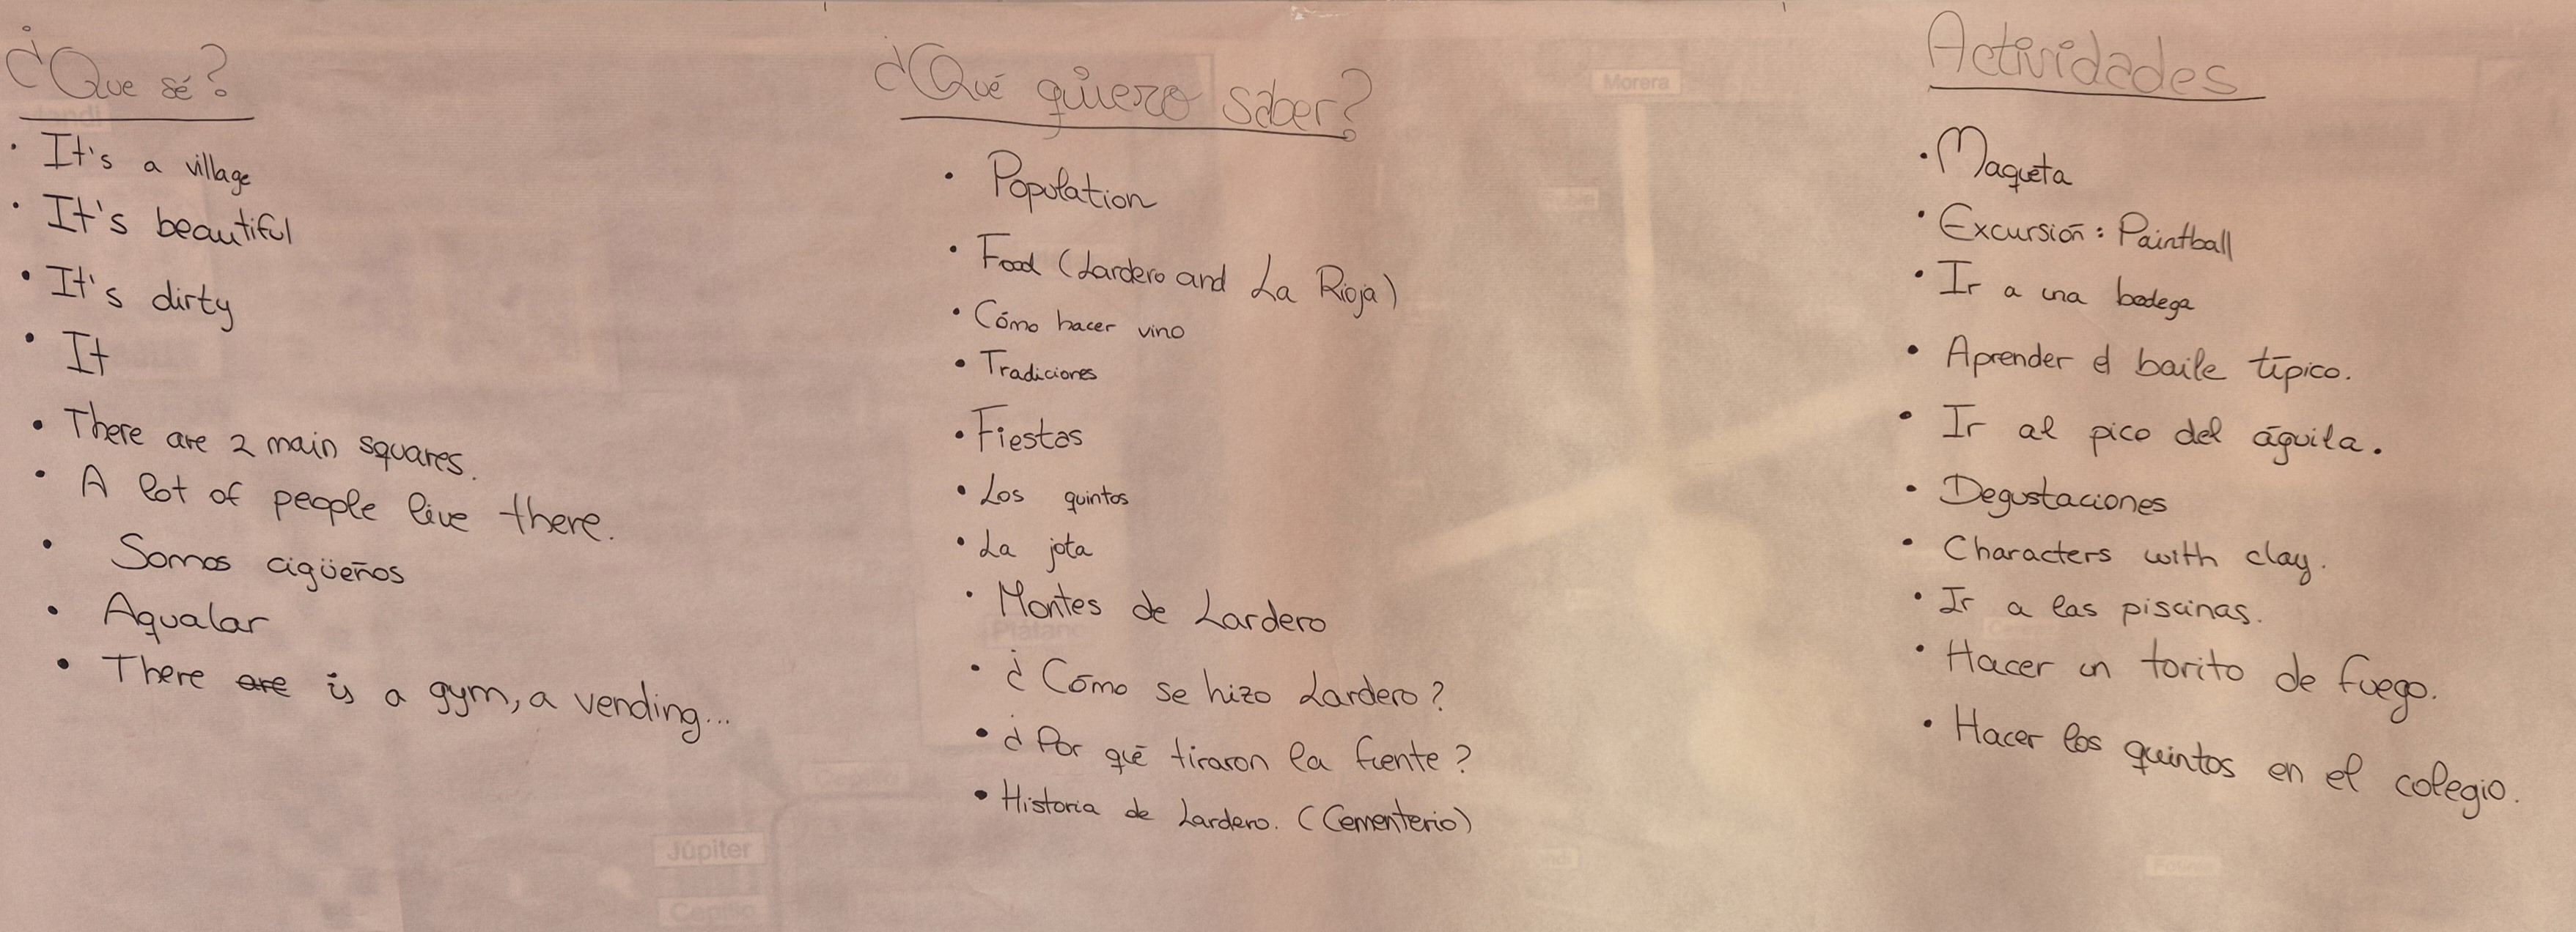 ¿Que sé?
· It's a village
· It's beautiful
· It's dirty
· It
· There are 2 main squares.
· A lot of people live there.
· Somos cigüeños
· Aqualar
· There are is a gym, a vending...
¿Qué quiero saber?
· Population
· Food (Lardero and La Rioja)
· Cómo hacer vino
· Tradiciones
· Fiestas
· Los quintos
· La jota
· Montes de Lardero
· ¿Cómo se hizo Lardero?
· ¿Por qué tiraron la fuente?
· Historia de Lardero. (Cementerio)
Actividades
· Maqueta
· Excursión: Paintball
· Ir a una bodega
· Aprender el baile típico.
· Ir al pico del águila.
· Degustaciones
· Characters with clay.
· Ir a las piscinas.
· Hacer un torito de fuego.
· Hacer los quintos en el colegio.
Morera
Júpiter